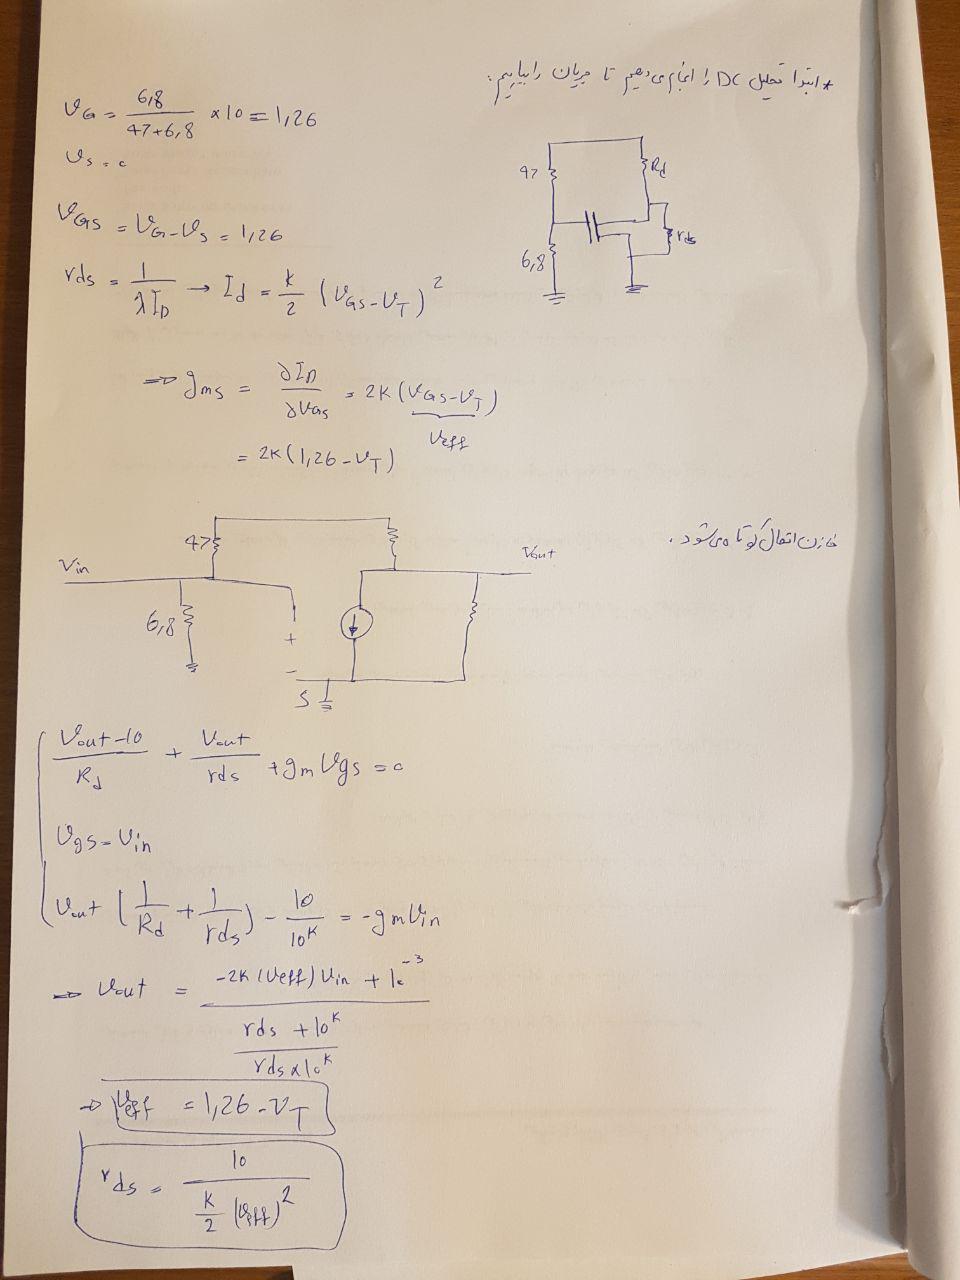 * ابتدا تحلیل DC را انجام می دهیم تا جریان را بیابیم:
V_G = 6,8 / (47+6,8) × 10 = 1,26
V_S = 0
47
R_d
r_ds
6,8
V_GS = V_G - V_S = 1,26
r_ds = 1 / (λ I_D) → I_d = k/2 (V_GS - V_T)^2
⇒ g_ms = ∂I_D / ∂V_GS = 2K (V_GS - V_T)
V_eff
= 2K (1,26 - V_T)
خازن اتصال کوتاه می شود.
47
V_in
V_out
6,8
+
-
S
(V_out - 10) / R_d + V_out / r_ds + g_m V_gs = 0
V_gs = V_in
V_out (1/R_d + 1/r_ds) - 10/10^K = -g_m V_in
⇒ V_out = (-2K (V_eff) V_in + 10^-3) / ((r_ds + 10^K) / (r_ds × 10^K))
⇒ V_eff = 1,26 - V_T
r_ds = 10 / (K/2 (V_eff)^2)